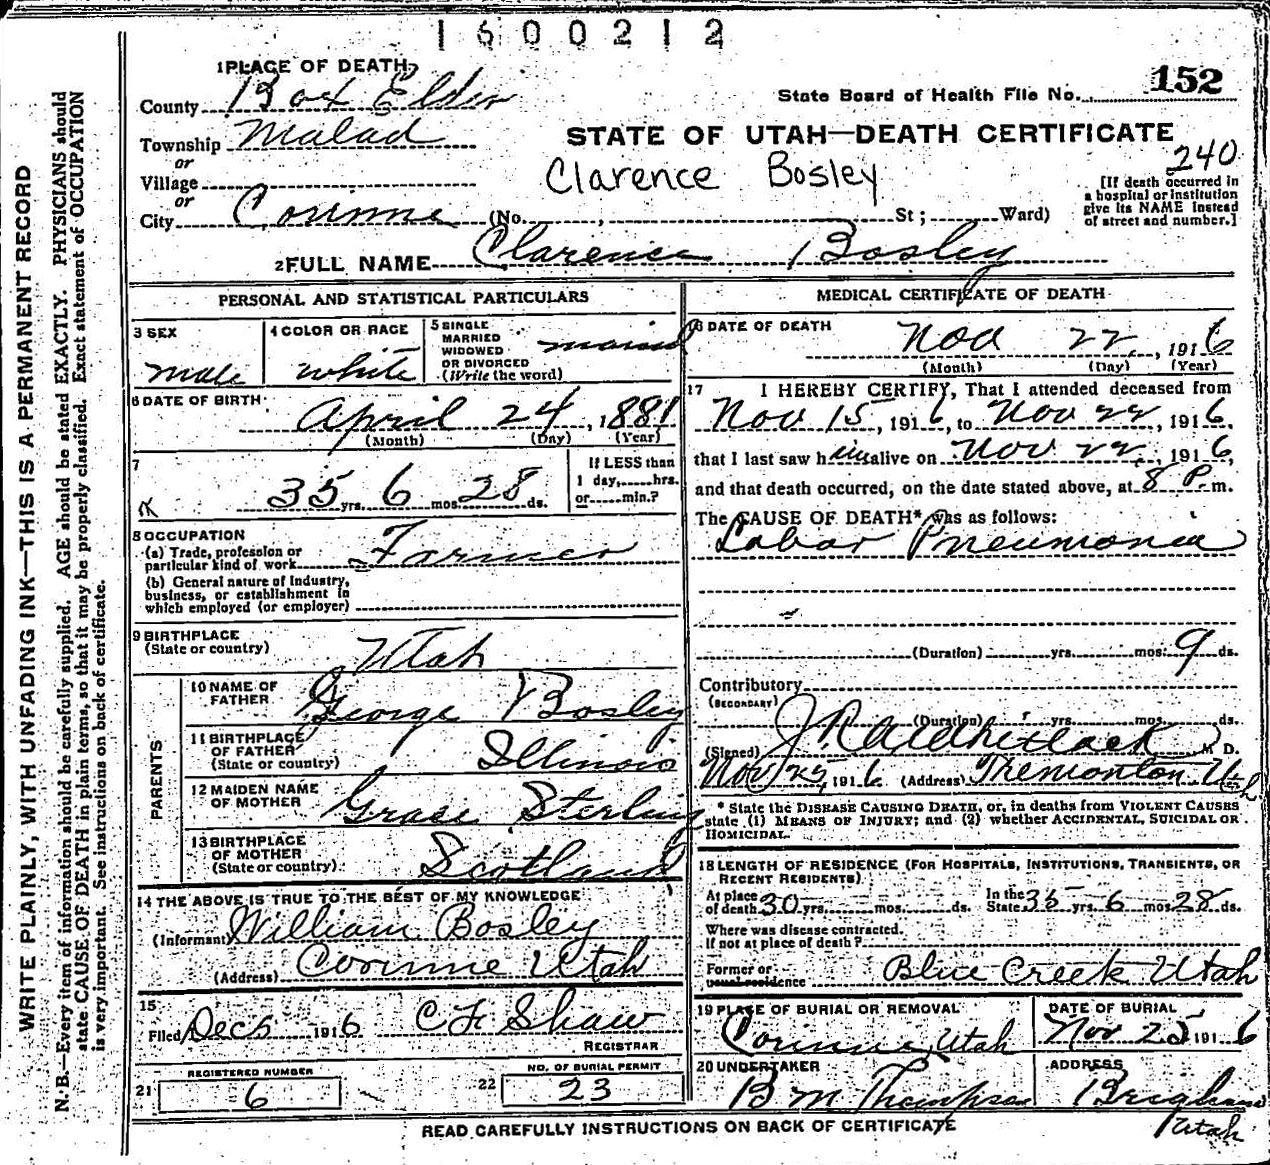 1600212
1 PLACE OF DEATH
County Box Elder
State Board of Health File No. 152
Township Malad
STATE OF UTAH—DEATH CERTIFICATE
or
Village
Clarence Bosley
240
or
City Corinne (No. , St ; Ward)
[If death occurred in
a hospital or institution
give its NAME instead
of street and number.]
2 FULL NAME Clarence Bosley
PERSONAL AND STATISTICAL PARTICULARS
3 SEX
male
4 COLOR OR RACE
white
5 SINGLE
MARRIED
WIDOWED
OR DIVORCED
(Write the word)
married
6 DATE OF BIRTH
April 24, 1881
(Month) (Day) (Year)
7
35 yrs. 6 mos. 28 ds.
If LESS than
1 day, hrs.
or min.?
8 OCCUPATION
(a) Trade, profession or
particular kind of work Farmer
(b) General nature of industry,
business, or establishment in
which employed (or employer)
9 BIRTHPLACE
(State or country)
Utah
PARENTS
10 NAME OF
FATHER
George Bosley
11 BIRTHPLACE
OF FATHER
(State or country)
Illinois
12 MAIDEN NAME
OF MOTHER
Grace Sterling
13 BIRTHPLACE
OF MOTHER
(State or country)
Scotland
14 THE ABOVE IS TRUE TO THE BEST OF MY KNOWLEDGE
(Informant) William Bosley
(Address) Corinne Utah
15
Filed Dec 5 1916 C F Shaw
REGISTRAR
REGISTERED NUMBER
21 6
NO. OF BURIAL PERMIT
22 23
MEDICAL CERTIFICATE OF DEATH
16 DATE OF DEATH
Nov 22, 1916
(Month) (Day) (Year)
17 I HEREBY CERTIFY, That I attended deceased from
Nov 15, 1916, to Nov 22, 1916.
that I last saw him alive on Nov 22, 1916,
and that death occurred, on the date stated above, at 8 P m.
The CAUSE OF DEATH* was as follows:
Lobar Pneumonia
(Duration) yrs. mos. 9 ds.
Contributory
(SECONDARY)
(Duration) yrs. mos. ds.
(Signed) J R A Whitlock M D.
Nov 25, 1916 (Address) Tremonton Utah
* State the DISEASE CAUSING DEATH, or, in deaths from VIOLENT CAUSES
state (1) MEANS OF INJURY; and (2) whether ACCIDENTAL, SUICIDAL OR
HOMICIDAL.
18 LENGTH OF RESIDENCE (FOR HOSPITALS, INSTITUTIONS, TRANSIENTS, OR
RECENT RESIDENTS)
At place
of death 30 yrs. mos. ds.
In the
State 35 yrs. 6 mos. 28 ds.
Where was disease contracted.
If not at place of death?
Former or
usual residence Blue Creek Utah
19 PLACE OF BURIAL OR REMOVAL
Corinne, Utah
DATE OF BURIAL
Nov 25 1916
20 UNDERTAKER
B M Thompson
ADDRESS
Brigham
Utah
READ CAREFULLY INSTRUCTIONS ON BACK OF CERTIFICATE
WRITE PLAINLY, WITH UNFADING INK—THIS IS A PERMANENT RECORD
N. B.—Every item of information should be carefully supplied. AGE should be stated EXACTLY. PHYSICIANS should
state CAUSE OF DEATH in plain terms, so that it may be properly classified. Exact statement of OCCUPATION
is very important. See instructions on back of certificate.